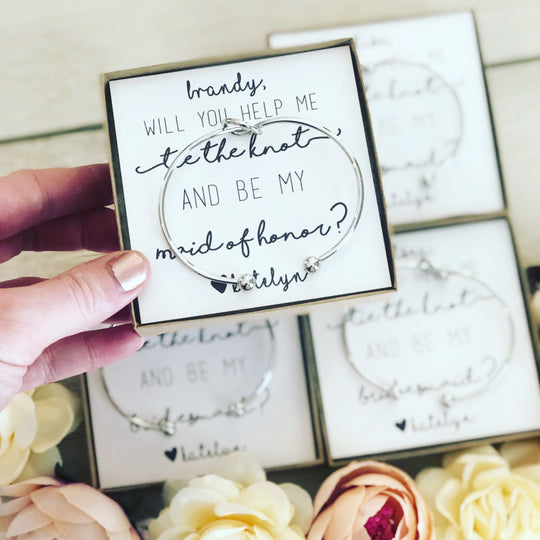 brandy,
WILL YOU HELP ME
tie the knot
AND BE MY
maid of honor?
♥katelyn
BE ME
the knot
BE MY
bridesmaid?
katelyn
tie the knot
AND BE MY
bridesmaid?
♥katelyn
tie the knot
AND BE MY
bridesmaid?
♥katelyn